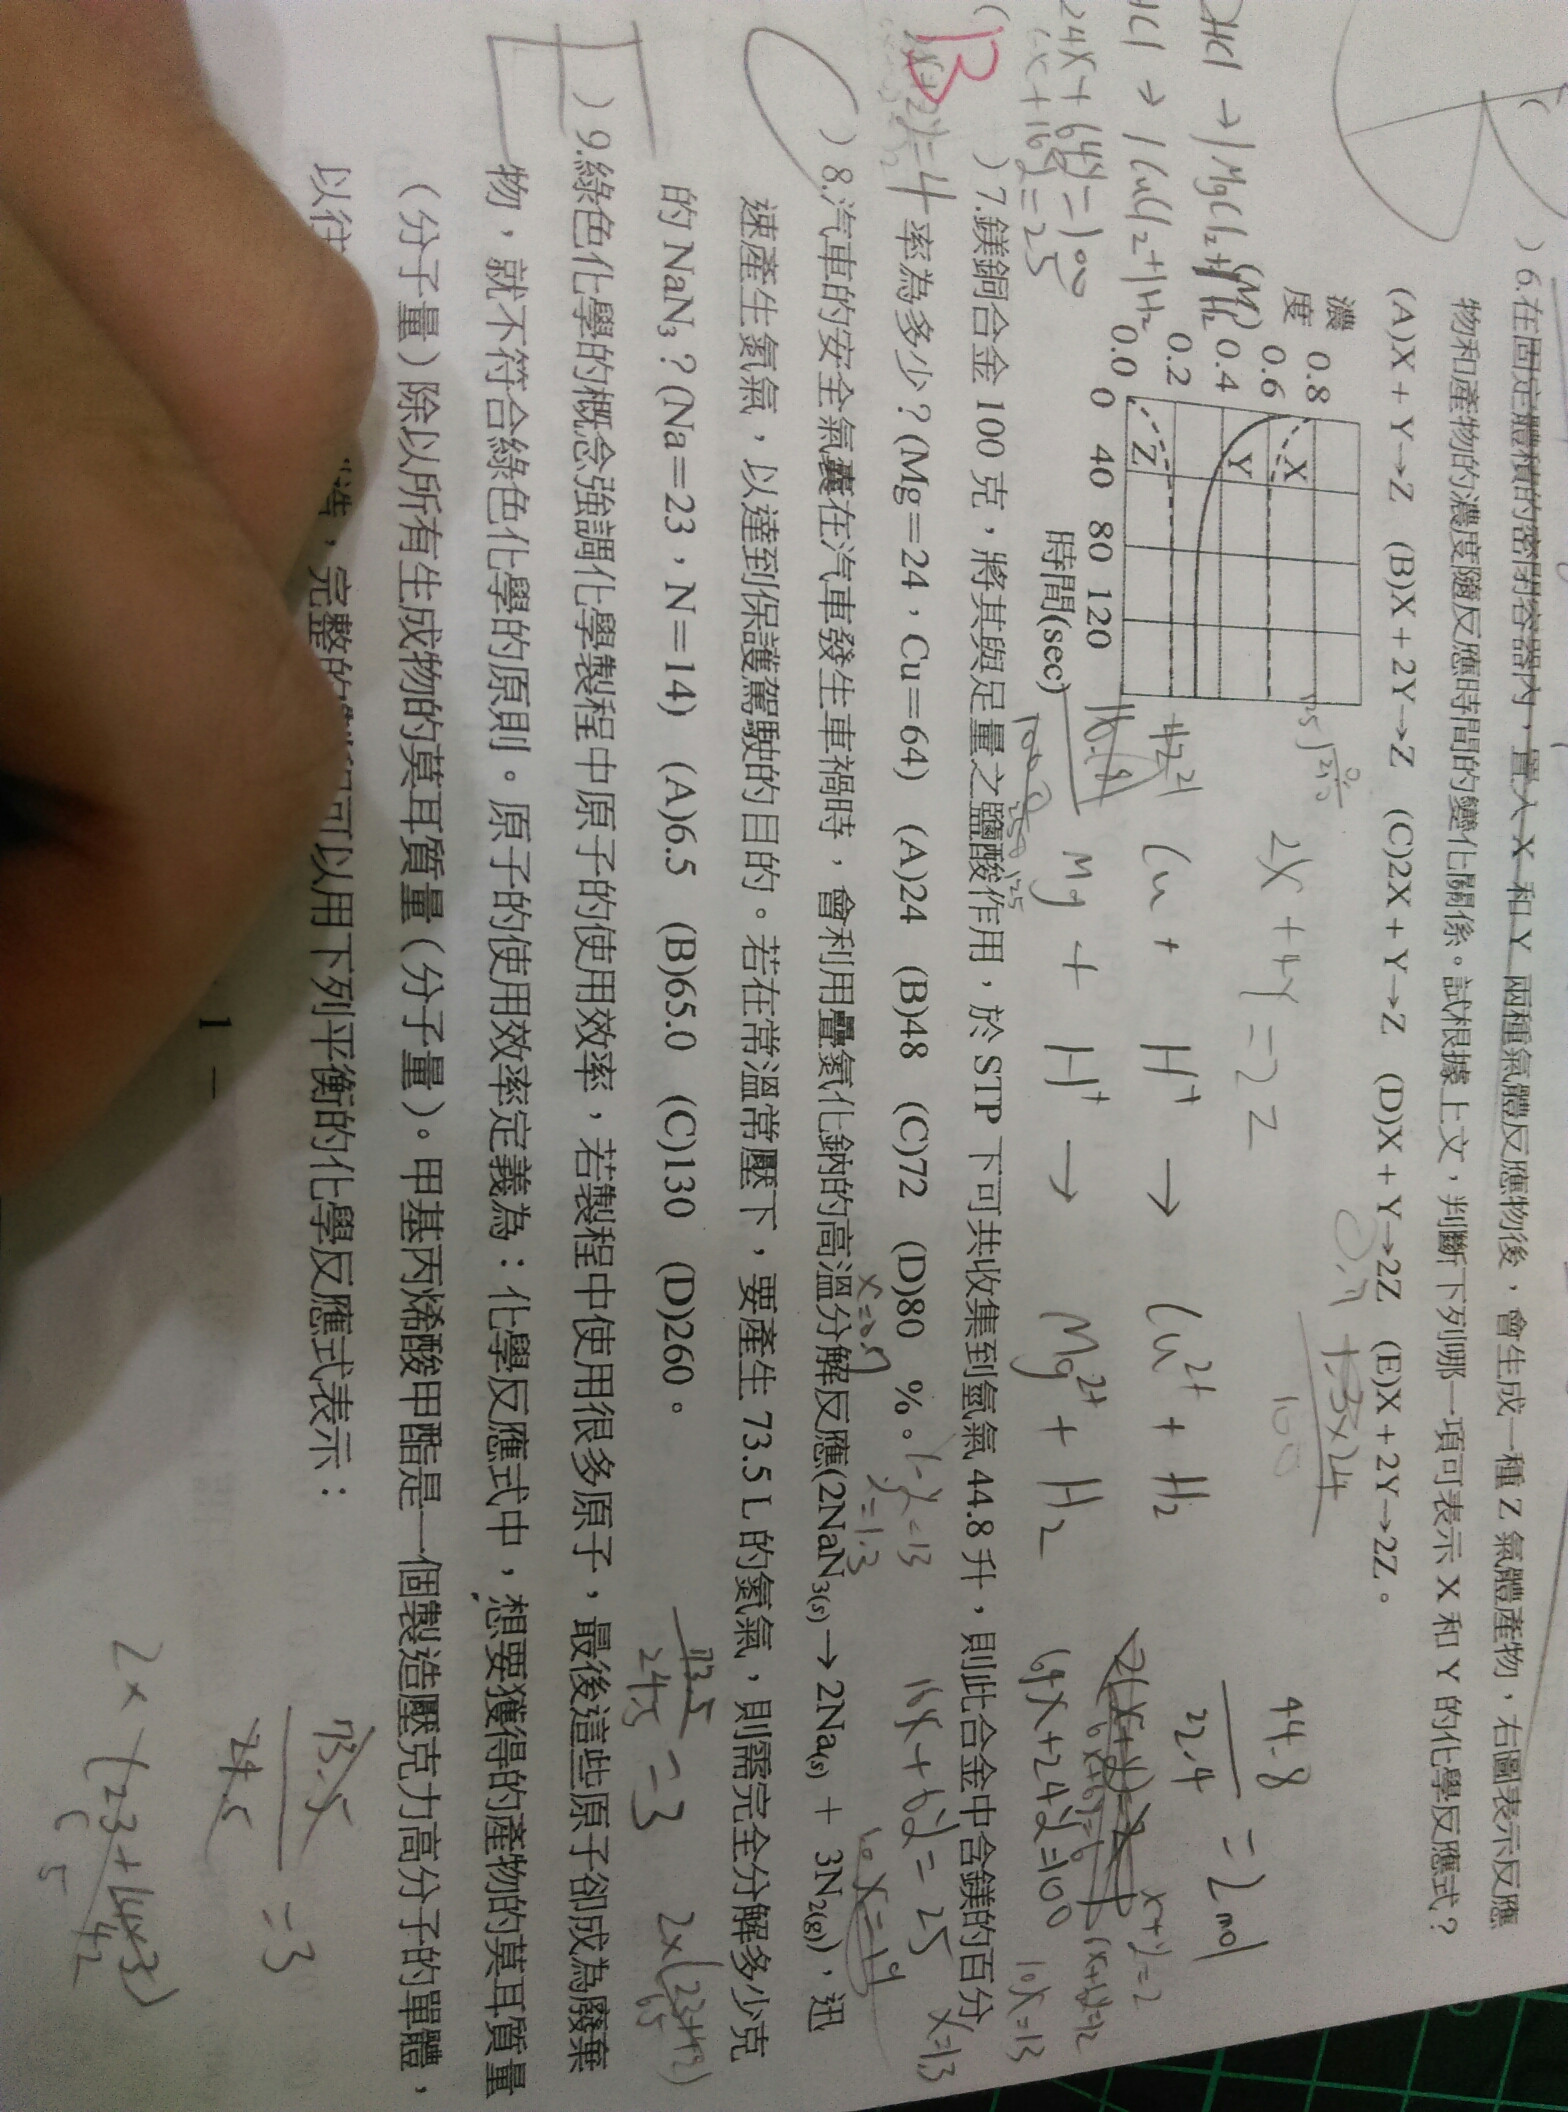 )6.在固定體積的密閉容器內，置入 X 和 Y 兩種氣體反應物後，會生成一種 Z 氣體產物，右圖表示反應
物和產物的濃度隨反應時間的變化關係。試根據上文，判斷下列哪一項可表示 X 和 Y 的化學反應式？
(A)X + Y→Z (B)X + 2Y→Z (C)2X + Y→Z (D)X + Y→2Z (E)X + 2Y→2Z。
濃度
(M)
0.8
0.6
0.4
0.2
0.0
X
Y
Z
0 40 80 120
時間(sec)
2X + 4Y = 2Z
44.8
22.4
= 2mol
Cu + H⁺ → Cu²⁺ + H₂
Mg + H⁺ → Mg²⁺ + H₂
x+y=2
64x+24y=100
10x=13
24x+64y=100
6x+16y=25
B
)7.鎂銅合金 100 克，將其與足量之鹽酸作用，於 STP 下可共收集到氫氣 44.8 升，則此合金中含鎂的百分
率為多少？(Mg＝24，Cu＝64) (A)24 (B)48 (C)72 (D)80 %。
16x+6y=25
x=1.3
)8.汽車的安全氣囊在汽車發生車禍時，會利用疊氮化鈉的高溫分解反應(2NaN3(s)→2Na(s) + 3N2(g))，迅
速產生氮氣，以達到保護駕駛的目的。若在常溫常壓下，要產生 73.5 L 的氮氣，則需完全分解多少克
的 NaN3？(Na＝23，N＝14) (A)6.5 (B)65.0 (C)130 (D)260。
73.5
24.5
= 3
2x(23+42)
65
)9.綠色化學的概念強調化學製程中原子的使用效率，若製程中使用很多原子，最後這些原子卻成為廢棄
物，就不符合綠色化學的原則。原子的使用效率定義為：化學反應式中，想要獲得的產物的莫耳質量
（分子量）除以所有生成物的莫耳質量（分子量）。甲基丙烯酸甲酯是一個製造壓克力高分子的單體，
以往 造，完整的 可以用下列平衡的化學反應式表示：
73.5
24.5
= 3
2x(23+14x3)
42
1 –